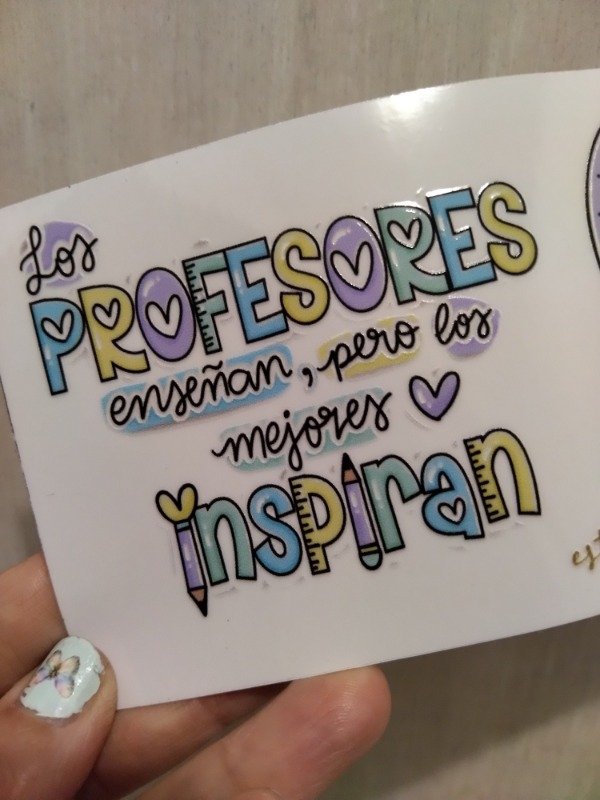 Los
PROFESORES
enseñan, pero los
mejores
inspiran